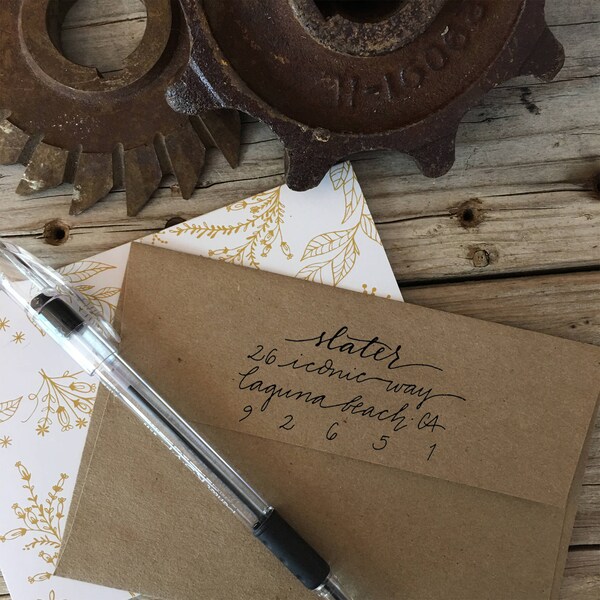 12001-H
slater
26 iconic way
laguna beach, CA
9 2 6 5 1